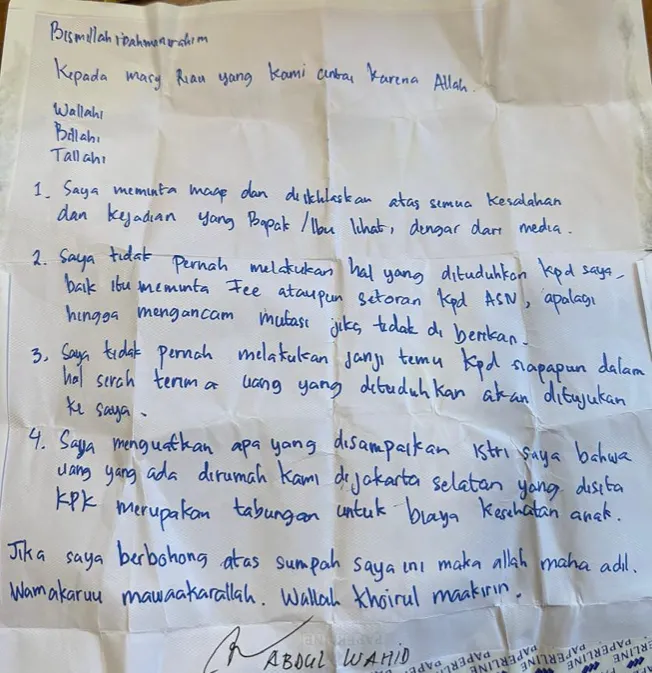 Bismillahirrahmanirrahim
Kepada masy Riau yang kami cintai karena Allah.
Wallahi
Billahi
Tallahi
1. Saya meminta maaf dan diikhlaskan atas semua kesalahan
dan kejadian yang Bapak/Ibu lihat, dengar dari media.
2. Saya tidak pernah melakukan hal yang dituduhkan kpd saya
baik itu meminta Fee ataupun setoran kpd ASN, apalagi
hingga mengancam mutasi jika tidak di berikan.
3. Saya tidak pernah melakukan janji temu kpd siapapun dalam
hal serah terima uang yang dituduhkan akan ditujukan
ke saya.
4. Saya menguatkan apa yang disampaikan istri saya bahwa
uang yang ada dirumah kami dijakarta selatan yang disita
KPK merupakan tabungan untuk biaya kesehatan anak.
Jika saya berbohong atas sumpah saya ini maka allah maha adil.
Wamakaruu mawaakarallah. Wallah khoirul maakirin.
ABDUL WAHID
PAPERLINE PAPERLINE PAPERLINE PAPERLINE